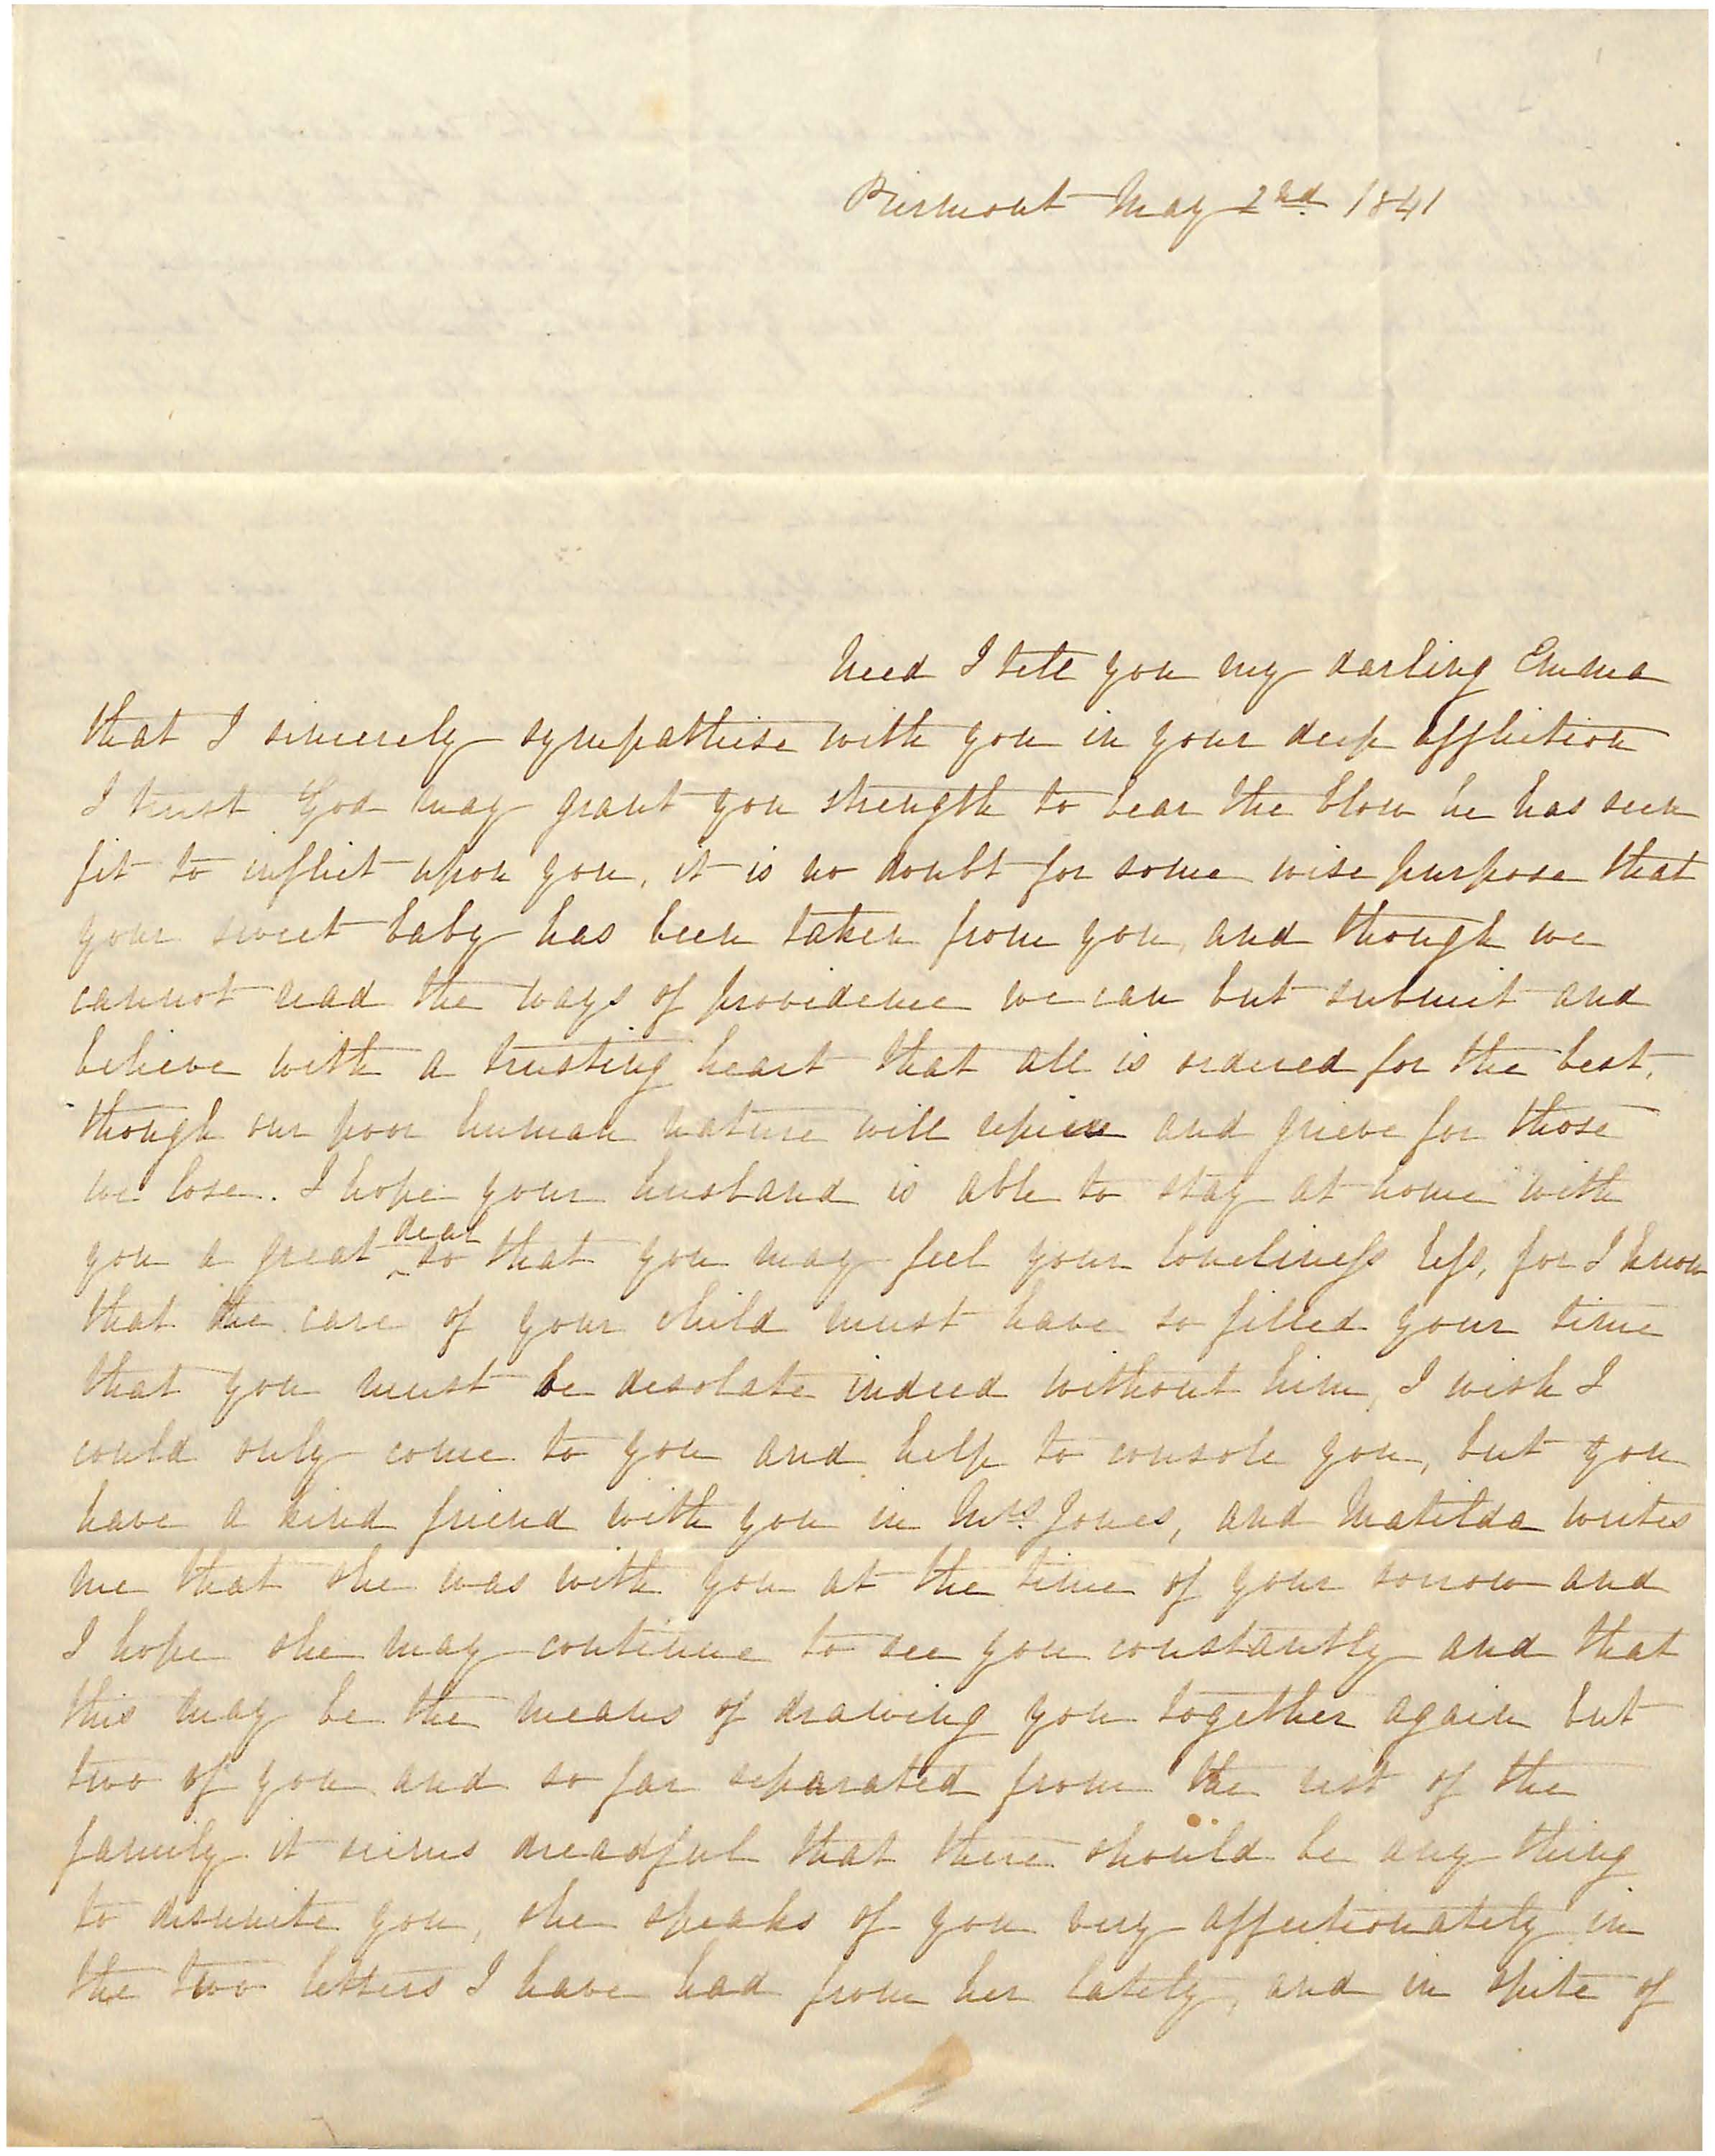 Piermont May 2nd 1841
Need I tell you my darling Emma
that I sincerely sympathise with you in your deep affliction
I trust God may grant you strength to bear the blow he has seen
fit to inflict upon you, it is no doubt for some wise purpose that
your sweet baby has been taken from you, and though we
cannot read the ways of providence we can but submit and
believe with a trusting heart that all is ordered for the best,
though our poor human nature will repine and grieve for those
we lose. I hope your husband is able to stay at home with
you a great deal so that you may feel your loneliness less, for I know
that the care of your child must have so filled your time
that you must be desolate indeed without him, I wish I
could only come to you and help to console you, but you
have a kind friend with you in Mrs. Jones, and Matilda writes
me that she was with you at the time of your sorrow and
I hope she may continue to see you constantly and that
this may be the means of drawing you together again but
two of you and so far separated from the rest of the
family it seems dreadful that there should be any thing
to disunite you, she speaks of you very affectionately in
the two letters I have had from her lately, and in spite of